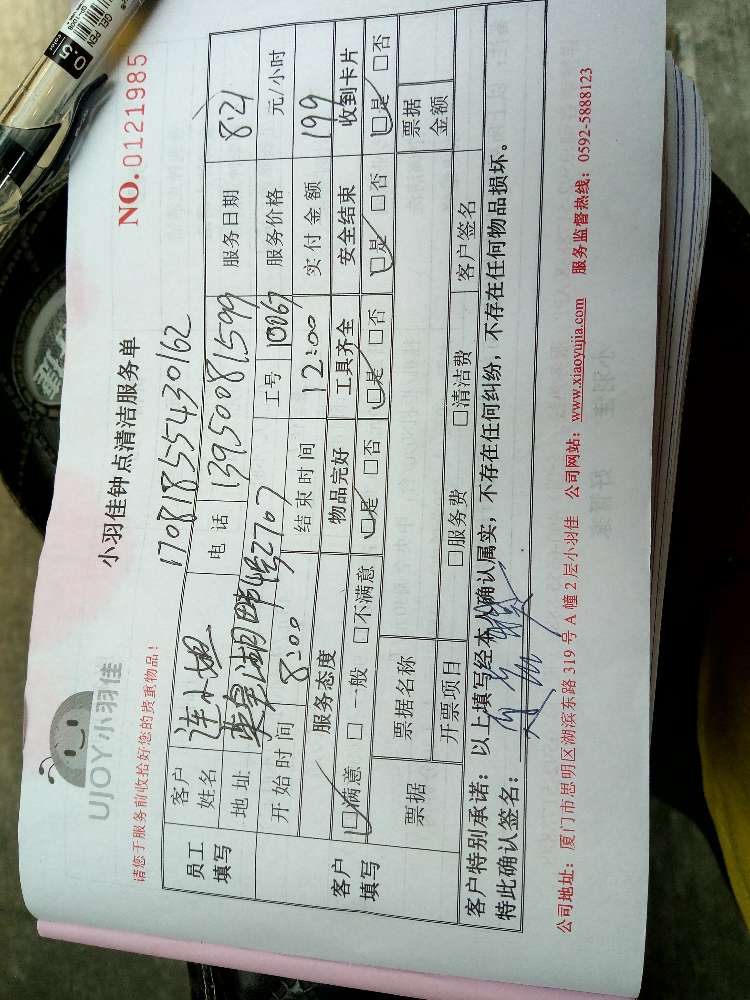 GEL PEN
0.5
UJOY小羽佳
小羽佳钟点清洁服务单
NO.0121985
请您于服务前收拾好您的贵重物品!
17081855430162
员工填写
客户姓名 连小姐 电话 13950081599 服务日期 8.21
地址 2707 工号 10067 服务价格 元/小时
开始时间 8:00 结束时间 12:00 实付金额 199
客户填写
服务态度 物品完好 工具齐全 安全结束 收到卡片
□满意 □一般 □不满意 □是 □否 □是 □否 □是 □否 □是 □否
票据
票据名称 票据金额
开票项目 □服务费 □清洁费 客户签名
客户特别承诺:以上填写经本人确认属实,不存在任何纠纷,不存在任何物品损坏。
特此确认签名:
公司地址:厦门市思明区湖滨东路 319 号 A 幢 2 层小羽佳 公司网站:www.xiaoyujia.com 服务监督热线:0592-5888123